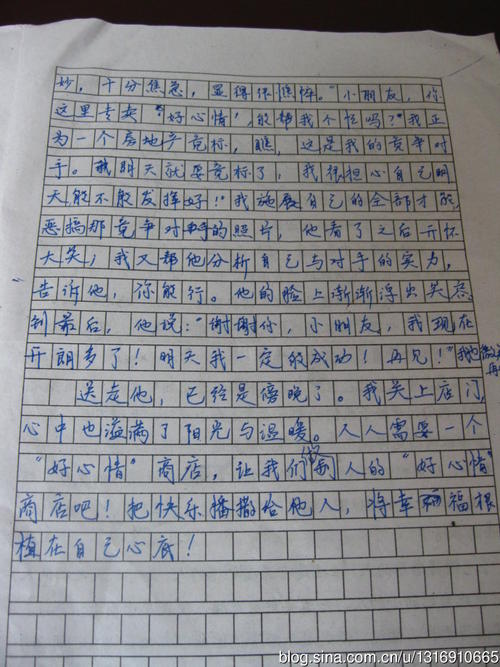 妙，十分焦急，显得很憔悴。“小朋友，你
这里专卖“好心情”，能帮我个忙吗？”我正
为一个房地产竞标，瞧，这是我的竞争对
手。我明天就要竞标了，我很担心自己明
天能不能发挥好！”我施展自己的全部才能，
恶搞那竞争对手的照片，他看了之后开怀
大笑；我又帮他分析自己与对手的实力，
告诉他，你能行。他的脸上渐渐浮出笑容，
到最后，他说：“谢谢你，小朋友，我现在
开朗多了！明天我一定能成功！再见！”
送走他，已经是傍晚了。我关上店门，
心中也溢满了阳光与温暖。人人需要一个
“好心情”商店，让我们做别人的“好心情”
商店吧！把快乐播撒给他人，将幸福根
植在自己心底！
blog.sina.com.cn/u/1316910665